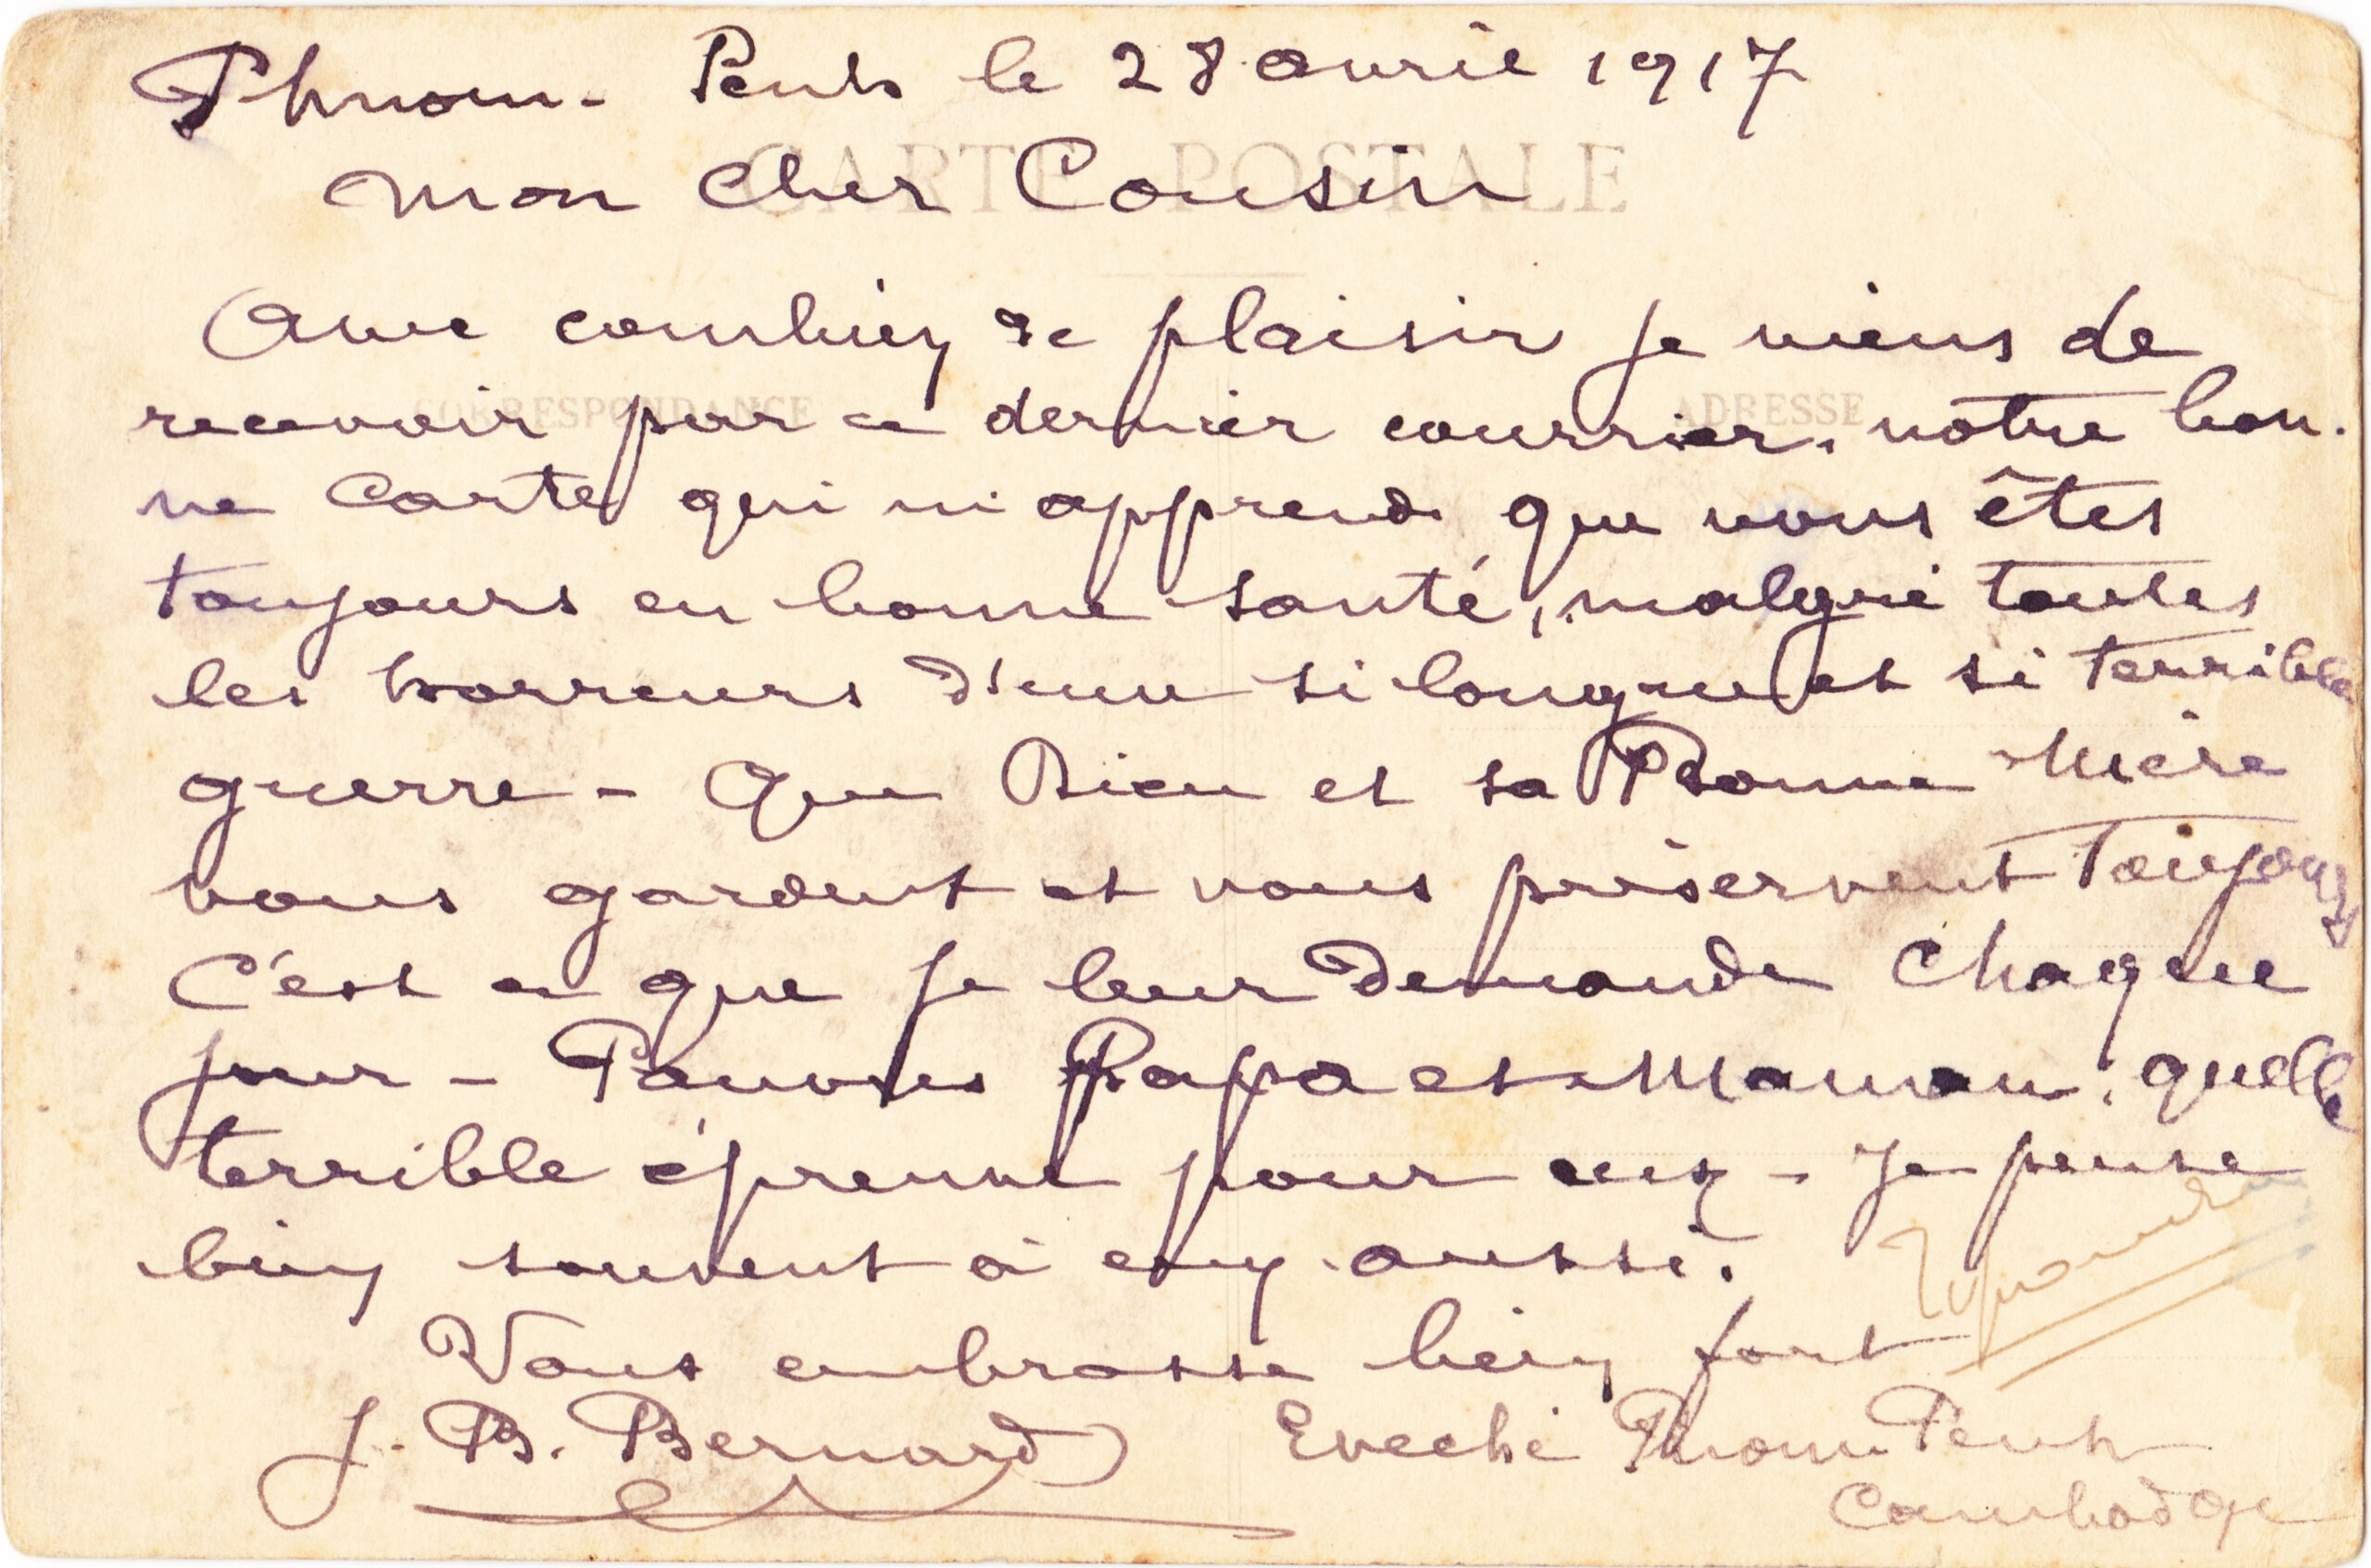 Phnom-Penh le 28 avril 1917
CARTE POSTALE
mon cher Cousin
Avec combien de plaisir je viens de
CORRESPONDANCE
ADRESSE
recevoir par ce dernier courrier, votre bon-
ne carte qui m'apprend que vous êtes
toujours en bonne santé, malgré toutes
les horreurs d'une si longue et si terrible
guerre - Que Dieu et sa Bonne Mère
vous gardent et vous préservent toujours
C'est ce que je leur demande chaque
jour - Pauvres Papa et Maman, quelle
terrible épreuve pour eux - Je pense
bien souvent à eux aussi.
Vous embrasse bien fort
J. B. Bernard Evéché Phnom Penh
Cambodge